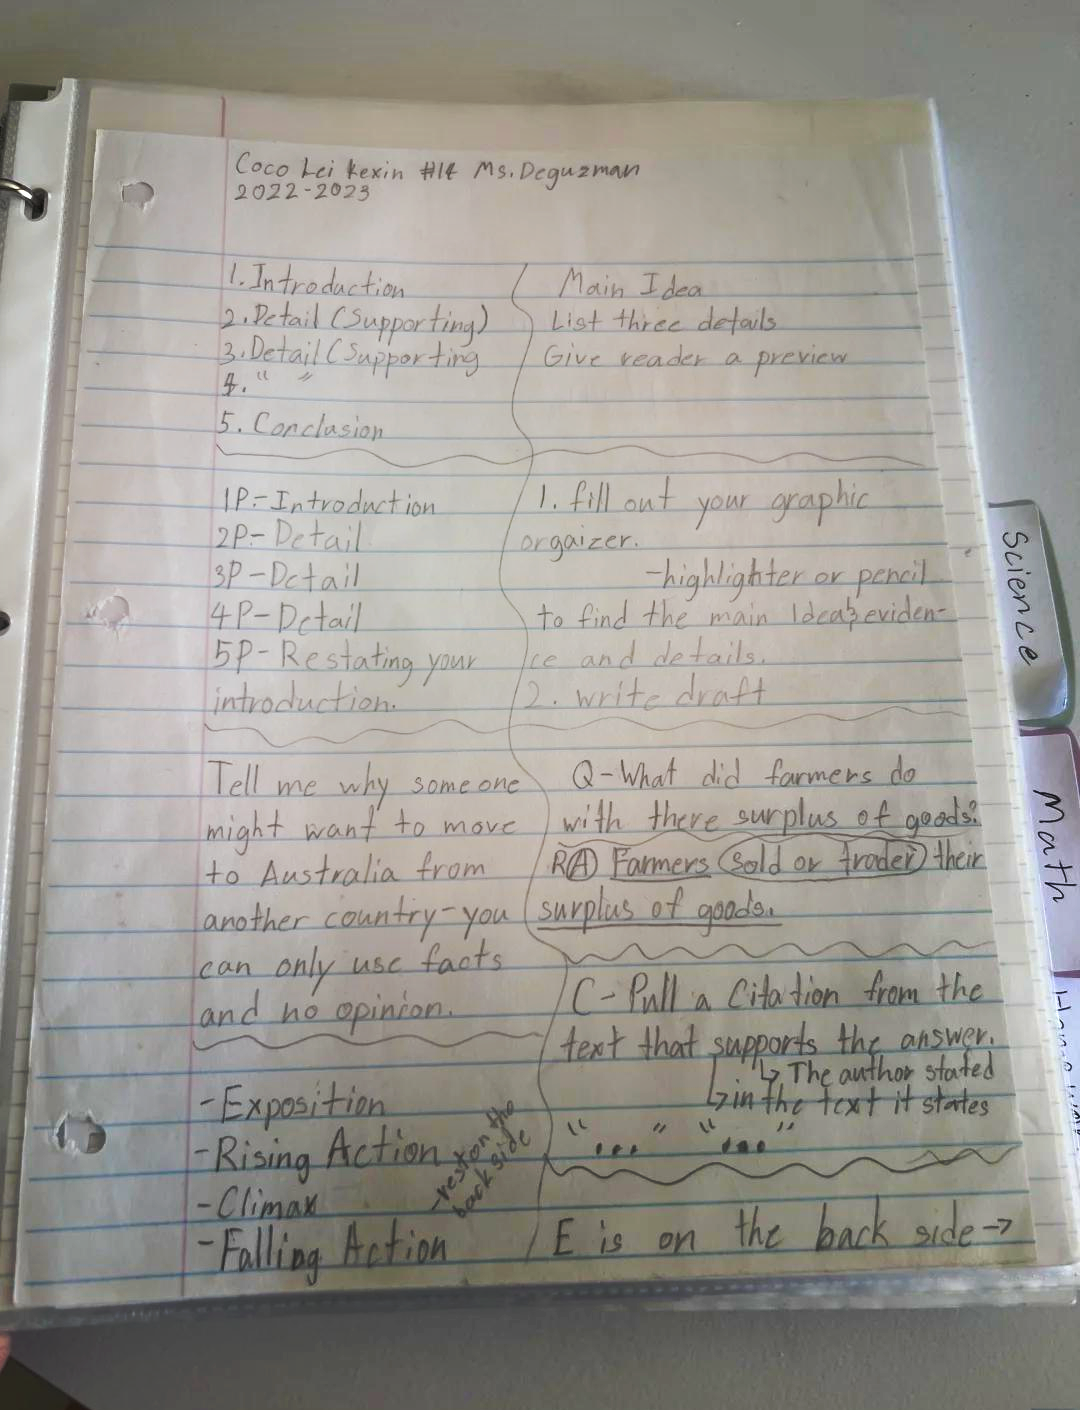 Coco Lei Kexin #14 Ms. Deguzman
2022-2023
1. Introduction
2. Detail (Supporting)
3. Detail (Supporting
4. " "
5. Conclusion
Main Idea
List three details
Give reader a preview
1P-Introduction
2P-Detail
3P-Detail
4P-Detail
5P-Restating your
introduction.
1. fill out your graphic
orgaizer.
-highlighter or pencil
to find the main Idea & eviden-
ce and details.
2. write draft
Tell me why someone
might want to move
to Australia from
another country-you
can only use facts
and no opinion.
Q-What did farmers do
with there surplus of goods?
RA Farmers sold or trader their
surplus of goods.
C-Pull a Citation from the
text that supports the answer.
↳ The author stated
↳ in the text it states
"..." "..."
-Exposition
-Rising Action
-Climax
-Falling Action
-rest on the
back side
E is on the back side→
Science
Math